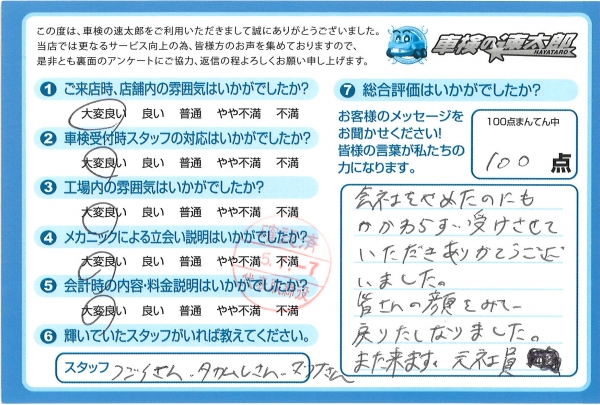 この度は、車検の速太郎をご利用いただきまして誠にありがとうございました。
当店では更なるサービス向上の為、皆様方のお声を集めておりますので、
是非とも裏面のアンケートにご協力、返信の程よろしくお願い申し上げます。
車検の速太郎
HAYATARO
1 ご来店時、店舗内の雰囲気はいかがでしたか?
大変良い 良い 普通 やや不満 不満
2 車検受付時スタッフの対応はいかがでしたか?
大変良い 良い 普通 やや不満 不満
3 工場内の雰囲気はいかがでしたか?
大変良い 良い 普通 やや不満 不満
4 メカニックによる立会い説明はいかがでしたか?
大変良い 良い 普通 やや不満 不満
5 会計時の内容・料金説明はいかがでしたか?
大変良い 良い 普通 やや不満 不満
6 輝いていたスタッフがいれば教えてください。
スタッフ
7 総合評価はいかがでしたか?
お客様のメッセージを
お聞かせください!
皆様の言葉が私たちの
力になります。
100点まんてん中
100 点
会社をやめたのにも
かかわらず、受けさせて
いただきありがとうござい
いました。
皆さんの顔をみて
戻りたくなりました。
また来ます。元社員